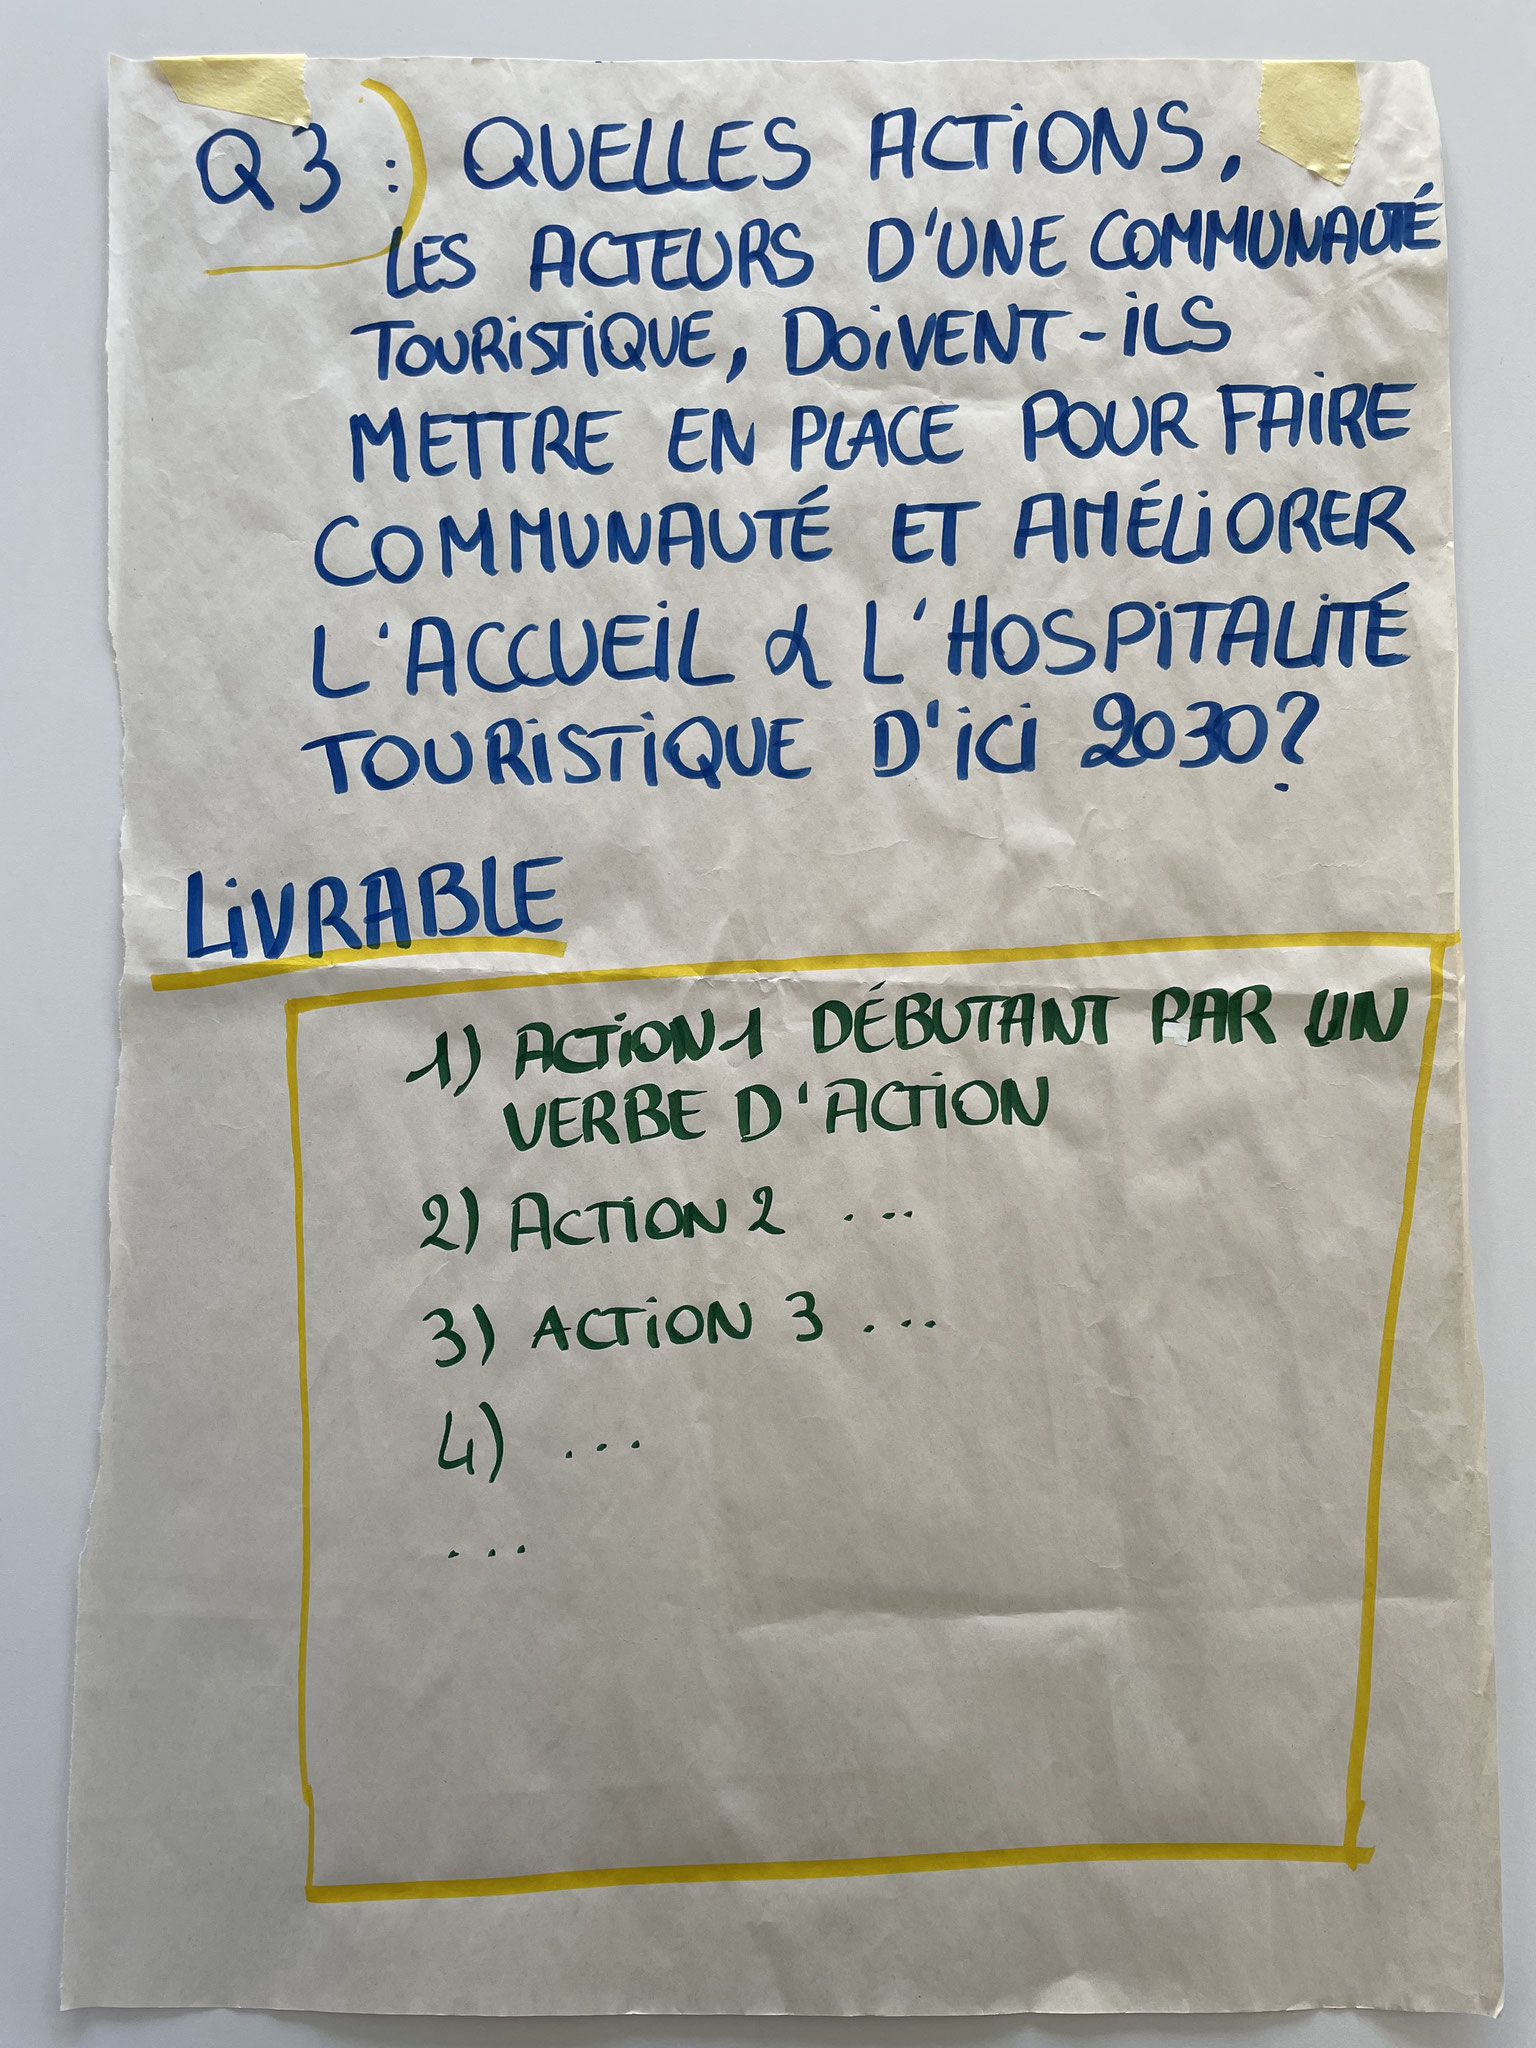 Q3 : QUELLES ACTIONS,
LES ACTEURS D'UNE COMMUNAUTÉ
TOURISTIQUE, DOIVENT-ILS
METTRE EN PLACE POUR FAIRE
COMMUNAUTÉ ET AMÉLIORER
L'ACCUEIL & L'HOSPITALITÉ
TOURISTIQUE D'ICI 2030?
LIVRABLE
1) ACTION 1 DÉBUTANT PAR UN
VERBE D'ACTION
2) ACTION 2 ...
3) ACTION 3 ...
4) ...
...